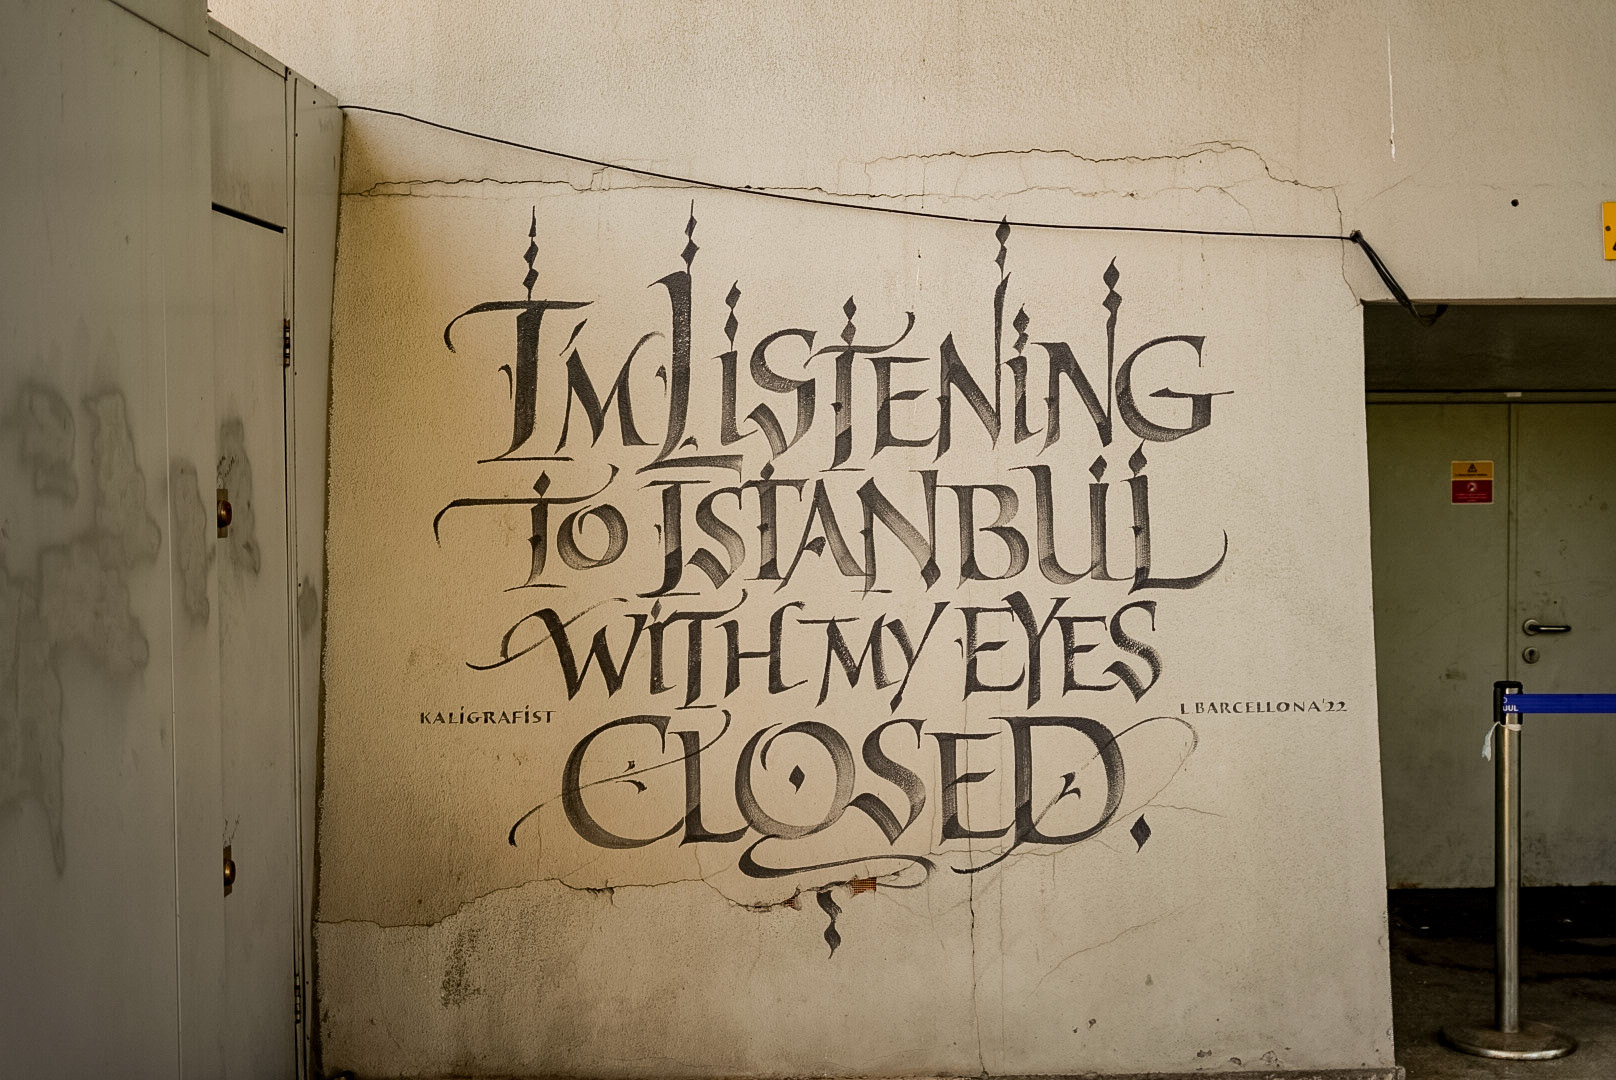 I'M LiSTENiNG
TO ISTANBUL
WiTH MY EYES
KALİGRAFİST
L BARCELLONA'22
CLOSED.